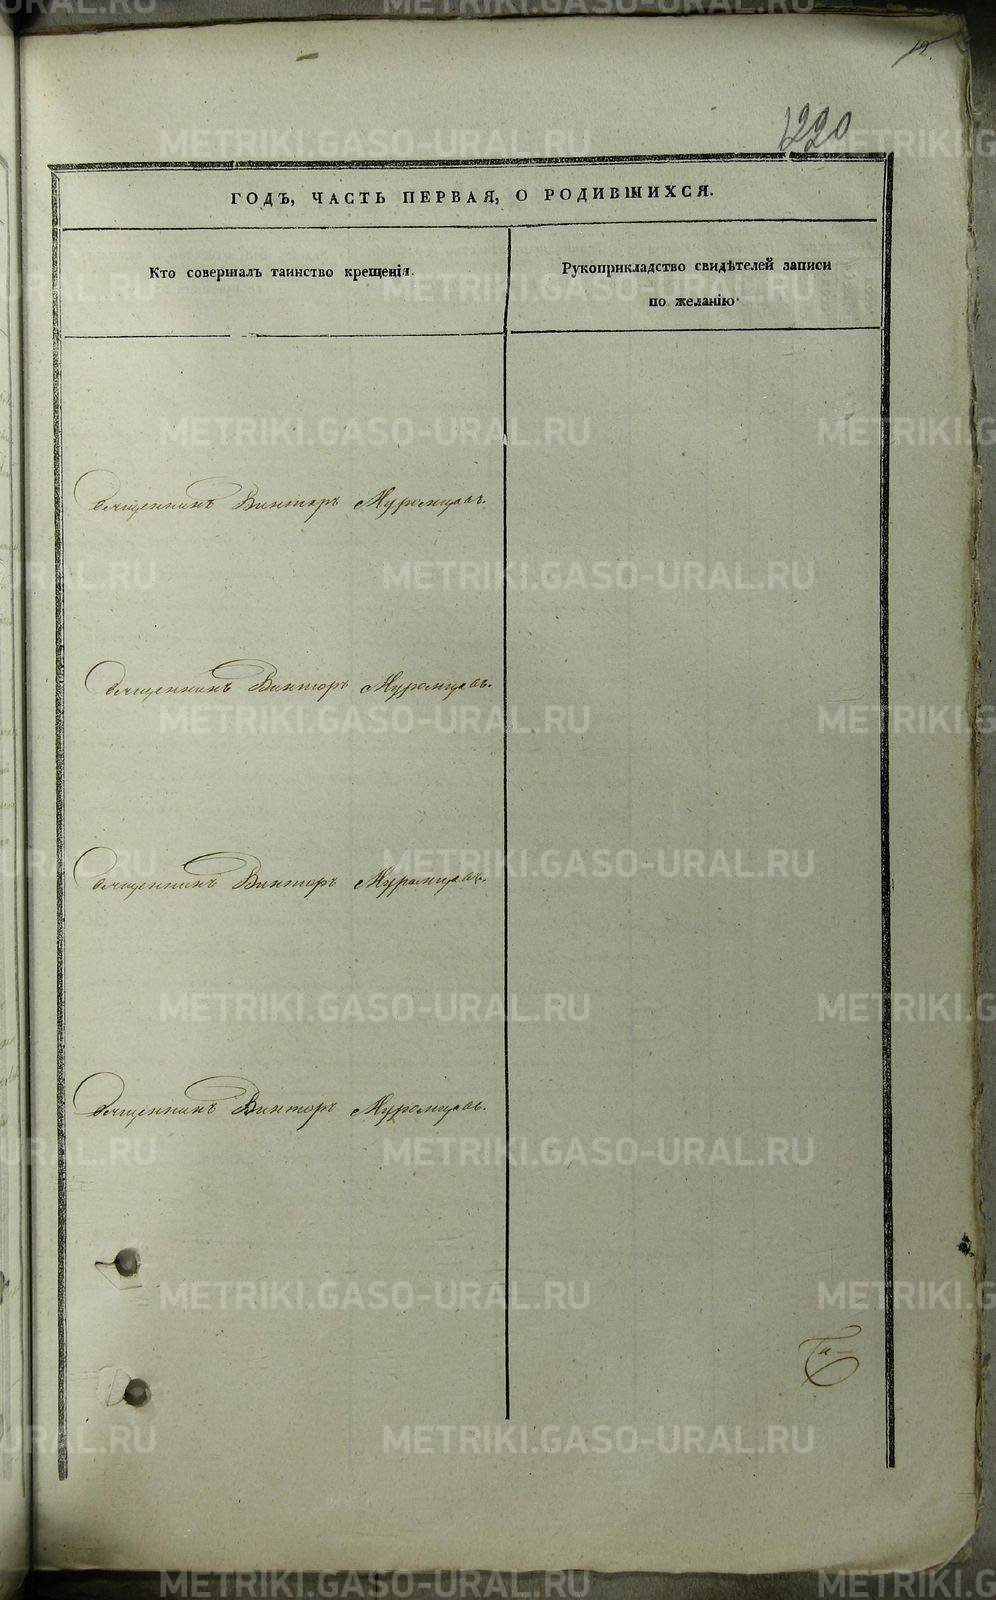 12.
220
ГОДЪ, ЧАСТЬ ПЕРВАЯ, О РОДИВШИХСЯ.
Кто совершалъ таинство крещенія.
Рукоприкладство свидѣтелей записи
по желанію
Священникъ Викторъ Муромцовъ.
Священникъ Викторъ Муромцовъ.
Священникъ Викторъ Муромцовъ.
Священникъ Викторъ Муромцовъ.
METRIKI.GASO-URAL.RU